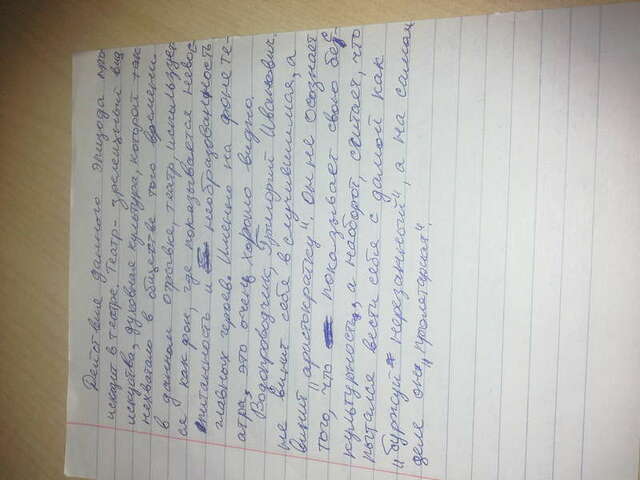 Действие данного эпизода про-
исходит в театре. Театр - зрелищный вид
искуства, духовная культура, которой так
нехватало в обществе того времени.
в данном отрывке, театр использует
ся как фон, где показывается невос-
питанность и необразованность
главных героев. Именно на фоне те-
атра, это очень хорошо видно.
Водопроводчик, Григорий Иванович,
не винит себя в случившимся, а
винит "аристократку". Он не осознает
того, что показывает свою бес-
культурность, а наоборот, считает, что
пытался вести себя с дамой как
"буржуй нерезанный", а на самом
деле он "пролетария".